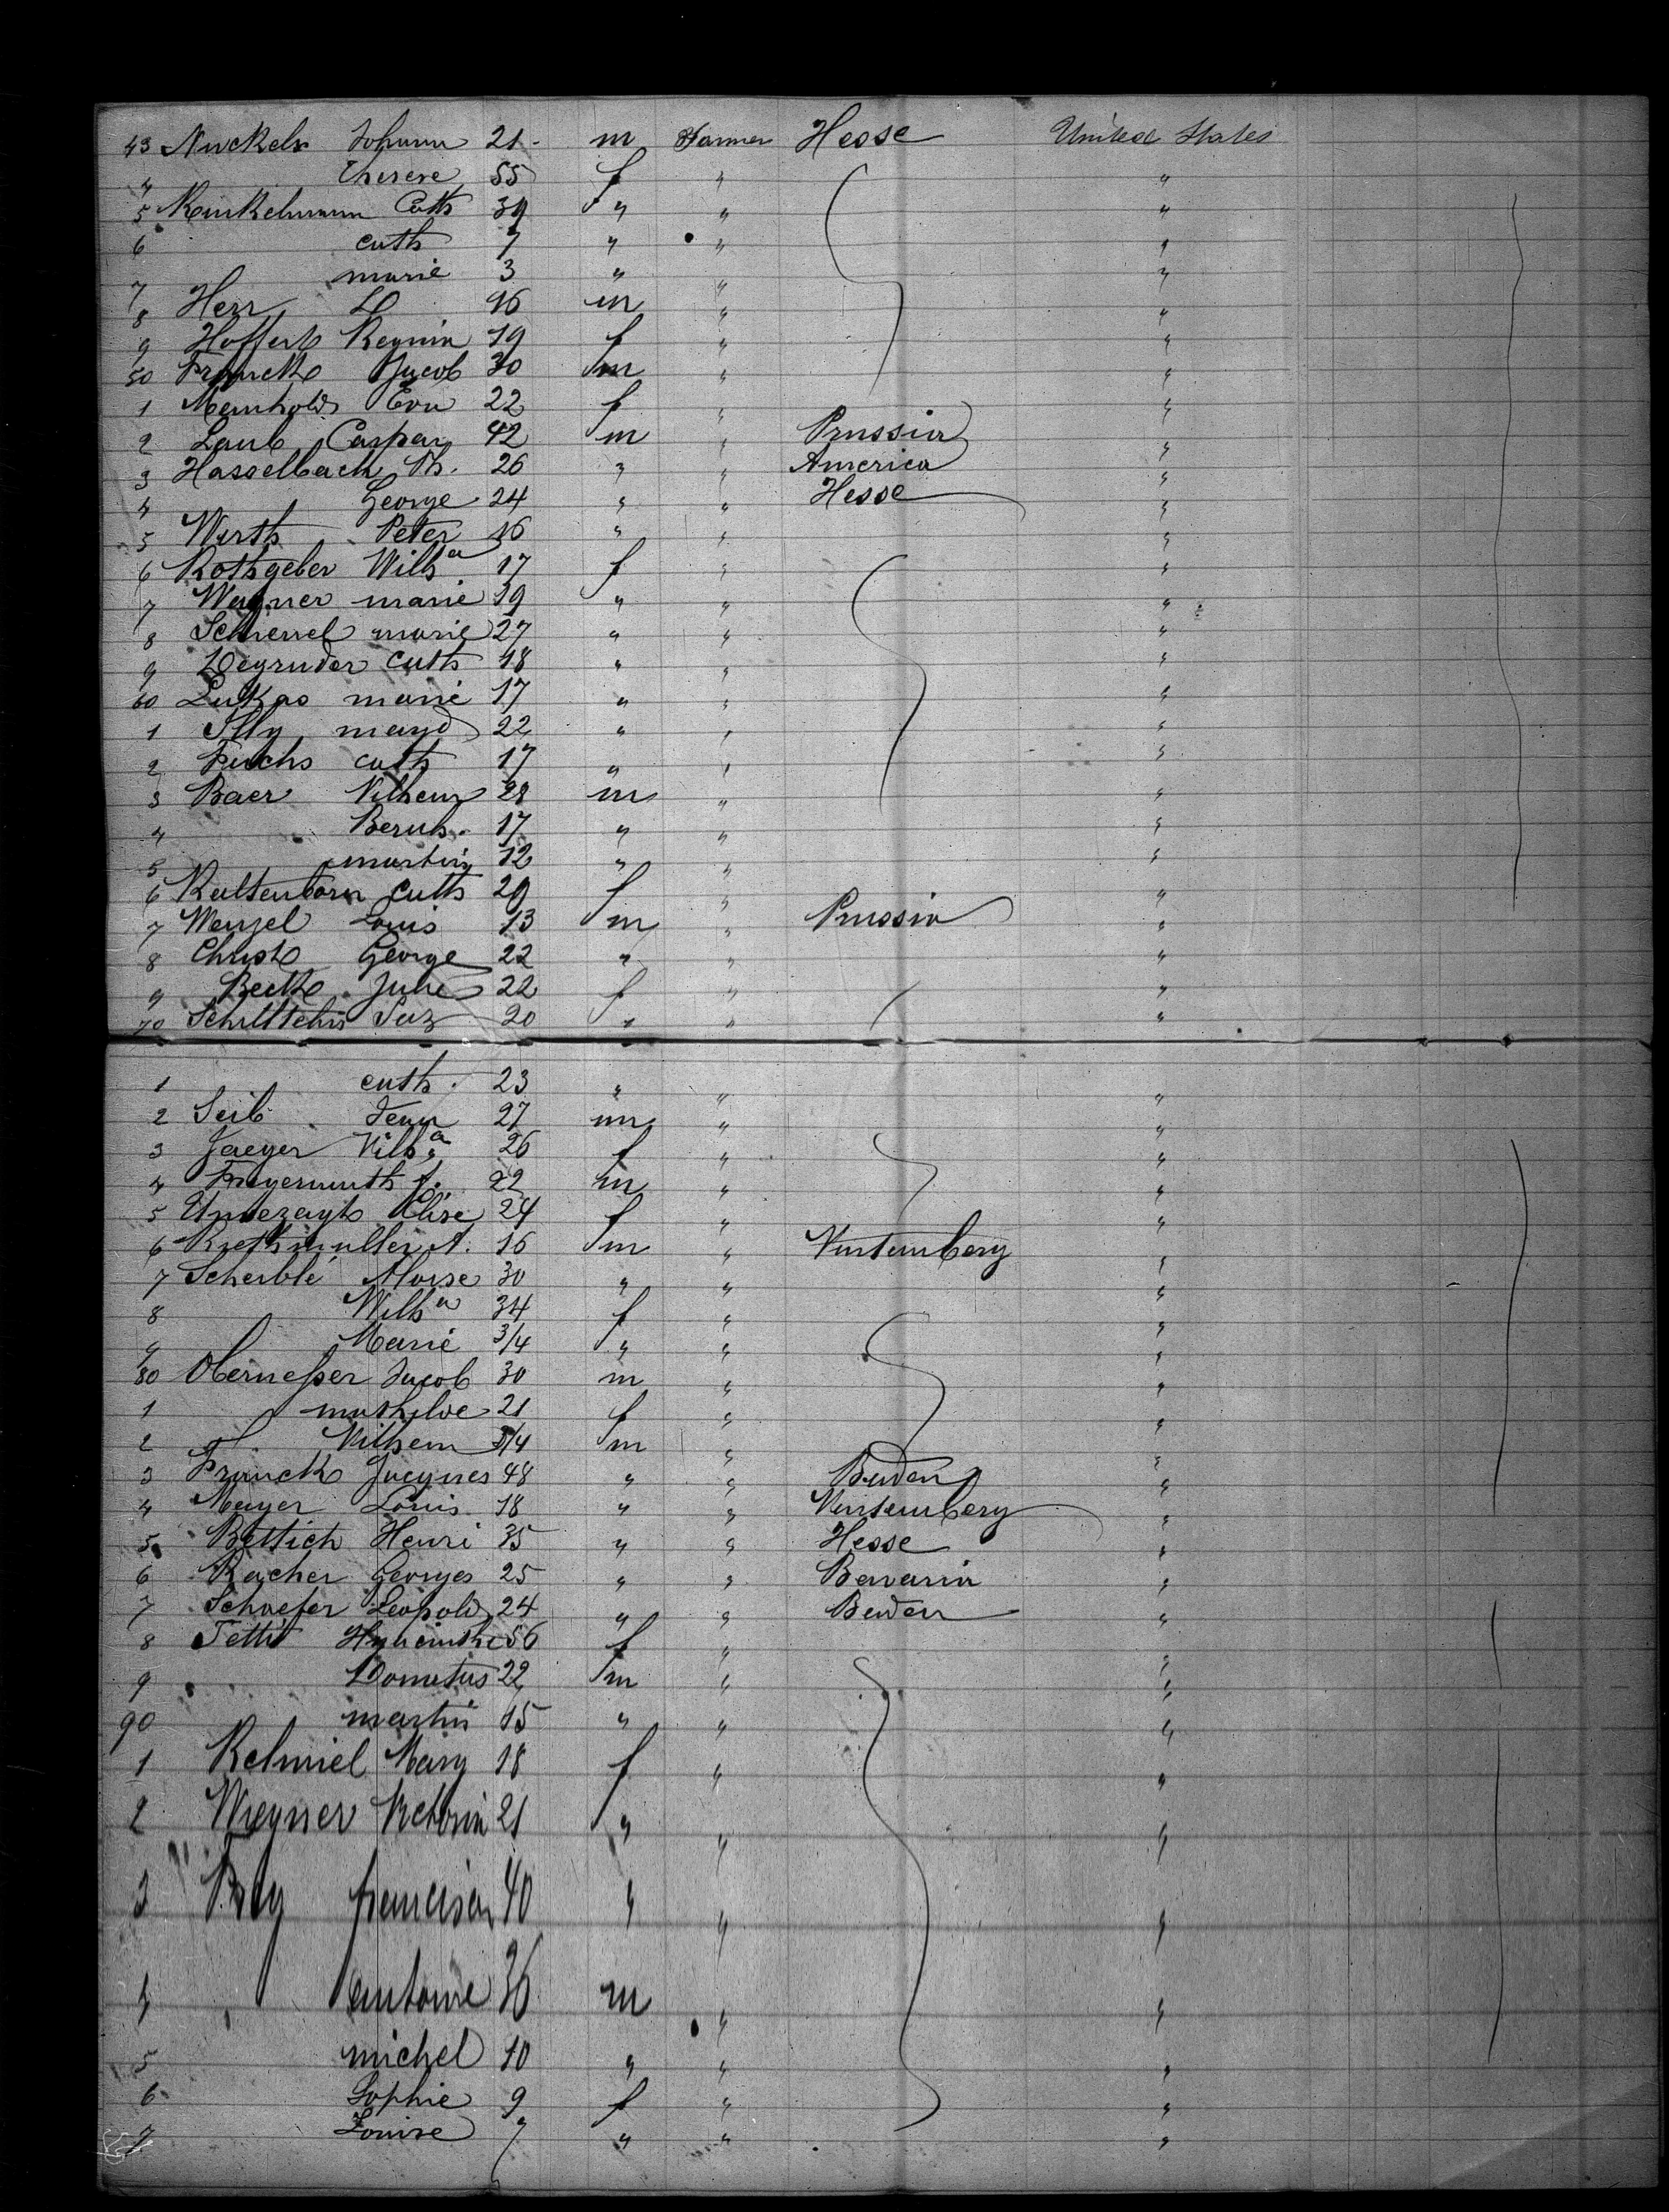 43 Nuckels Johann 21 m Farmer Hesse United States
4 Therese 55 f " "
5 Kunkelmann Cath 39 " " "
6 cath 7 " " "
7 marie 3 " " "
8 Herr D 46 m " "
9 Hoffert Regina 19 f " "
50 Franck Jacob 30 m " "
1 Meinhold Eva 22 f " "
2 Laub Caspar 42 m " Prussia "
3 Hasselbach Ph. 26 " " America "
4 George 24 " " Hesse "
5 Wirth Peter 16 " " "
6 Rothgeber Wilha 17 f " "
7 Wagner marie 19 " " "
8 marie 27 " " "
9 Degruder cath 18 " " "
60 Lukas marie 17 " " "
1 Illy magd 22 " " "
2 Fuchs cath 17 " " "
3 Baer Vilhem 28 m " "
4 Bernh. 17 " " "
5 martin 12 " " "
6 Kaltenborn cath 29 f " "
7 Wenzel Louis 13 m " Prussia "
8 Christ George 22 " " "
9 Beck Julie 22 f " "
70 Suz 20 " " "
1 cath. 23 " " "
2 Seib Jean 27 m " "
3 Jaeger Vilha 26 f " "
4 Freyermuth J. 22 m " "
5 Umbezagt Elise 24 f " "
6 A. 16 m " Vurtemberg "
7 Scheible Moise 30 " " "
8 Wilha 34 f " "
9 Marie 3/4 " " "
80 Obernesser Jacob 30 m " "
1 mathilde 21 f " "
2 Vilhem 3/4 m " "
3 Franck Jacques 48 " " Baden "
4 Mayer Louis 18 " " Vurtemberg "
5 Bettich Henri 35 " " Hesse "
6 Racher Georges 25 " " Bavaria "
7 Schaefer Leopold 24 " " Baden "
8 Tettit Hyacinthe 56 f " "
9 Donatus 22 m " "
90 martin 15 " " "
1 Kelmiel Mary 18 f " "
2 Wegner Victoria 21 " " "
3 francisca 40 " " "
4 antoine 36 m " "
5 michel 10 " " "
6 Sophie 9 f " "
7 Louise 7 " " "